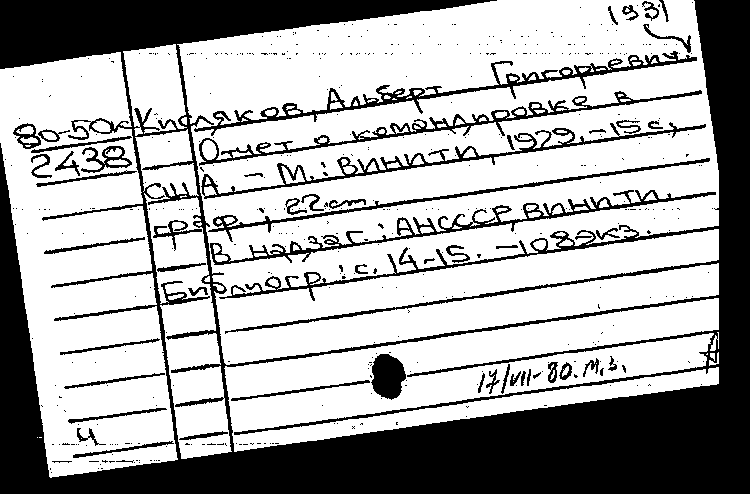 1931
80-50к Кисляков, Альберт Григорьевич.
2438 Отчет о командировке в
США. - М.: ВИНИТИ, 1979. - 15 с.,
граф.; 22 cm.
В надзаг.: АНСССР, ВИНИТИ.
Библиогр.: с. 14-15. - 108 экз.
17/VII-80. М.З.
ч